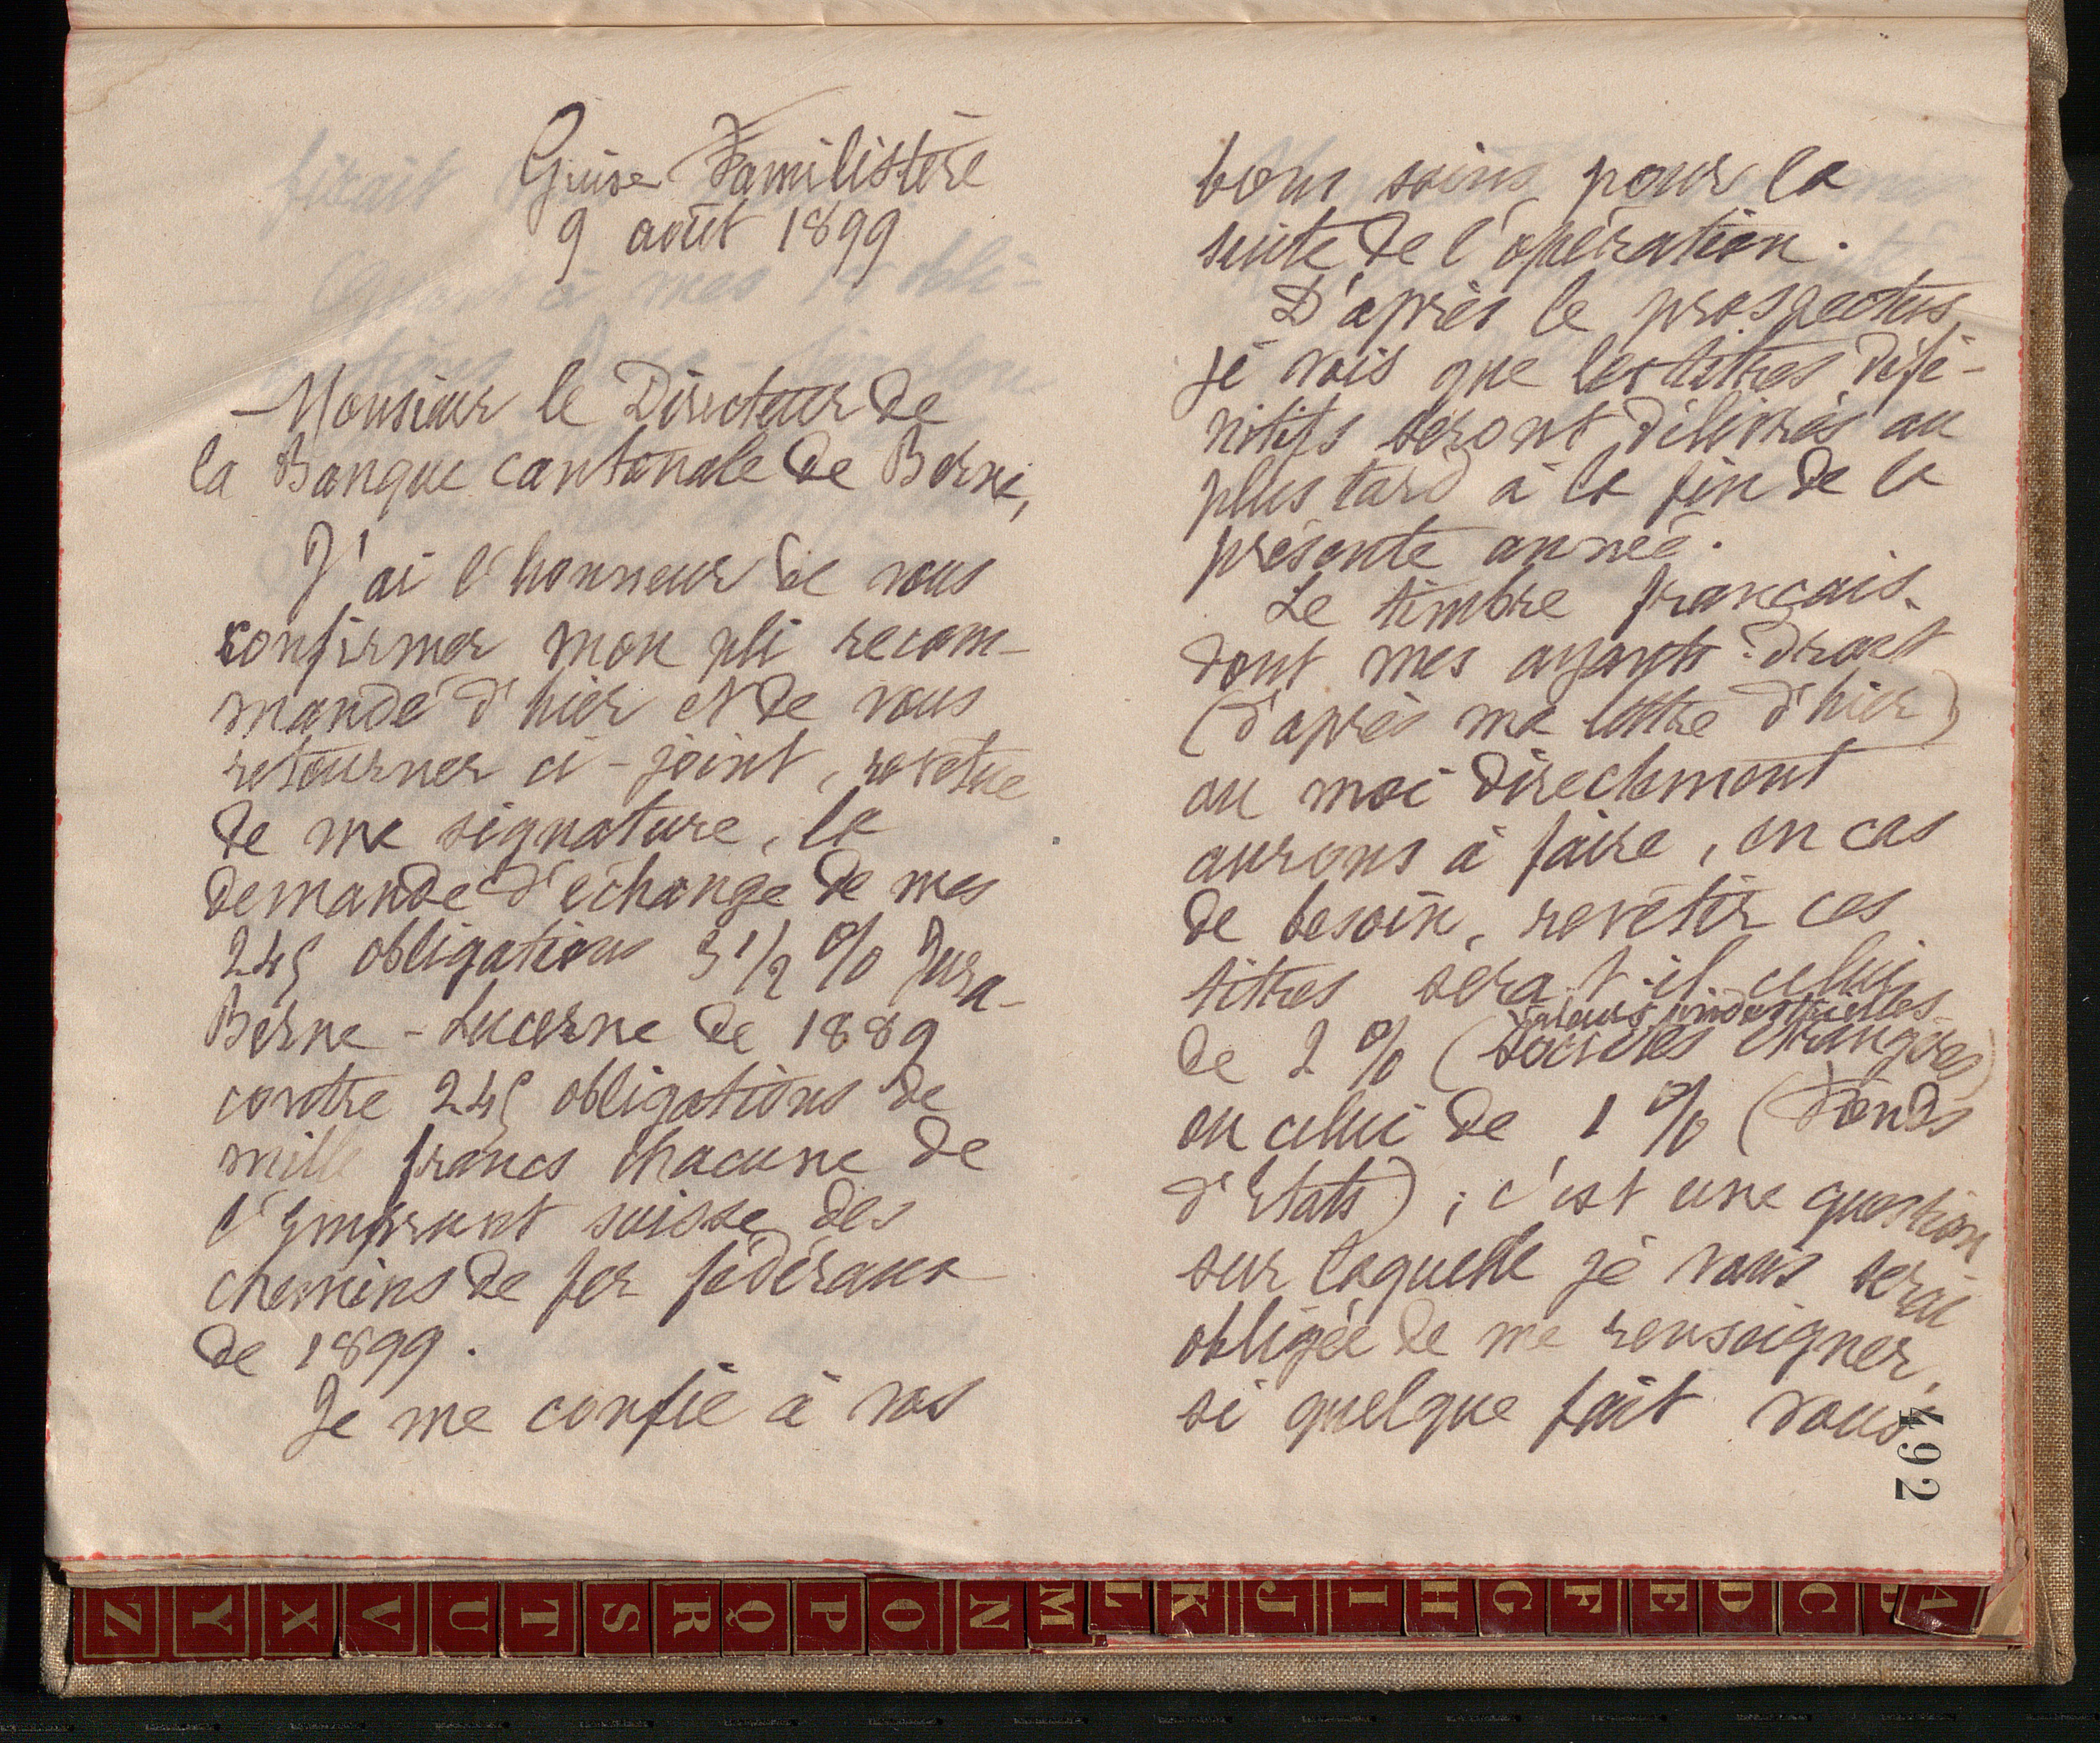 Guise Familistère
9 août 1899
Monsieur le Directeur de
la Banque cantonale de Berne,
J'ai l'honneur de vous
confirmer mon pli recom-
mandé d'hier et de vous
retourner ci-joint, revêtue
de ma signature, la
demande d'échange de mes
245 obligations 3 1/2 % Jura-
Berne-Lucerne de 1889
contre 245 obligations de
mille francs chacune de
l'Emprunt suisse des
chemins de fer fédéraux
de 1899.
Je me confie à vos
bons soins pour la
suite de l'opération.
D'après le prospectus,
je vois que les titres défi-
nitifs seront délivrés au
plus tard à la fin de la
présente année.
Le timbre français
dont mes ayants-droit
(d'après ma lettre d'hier)
ou moi directement
aurons à faire, en cas
de besoin, revêtir ces
titres sera-t-il celui
valeurs industrielles
de 2 % (Sociétés étrangères)
ou celui de 1 % (Fonds
d'Etats) ; c'est une question
sur laquelle je vous serai
obligée de me renseigner,
si quelque fait vous
492
Z Y X V U T S R Q P O N M L K J I H G F E D C B A